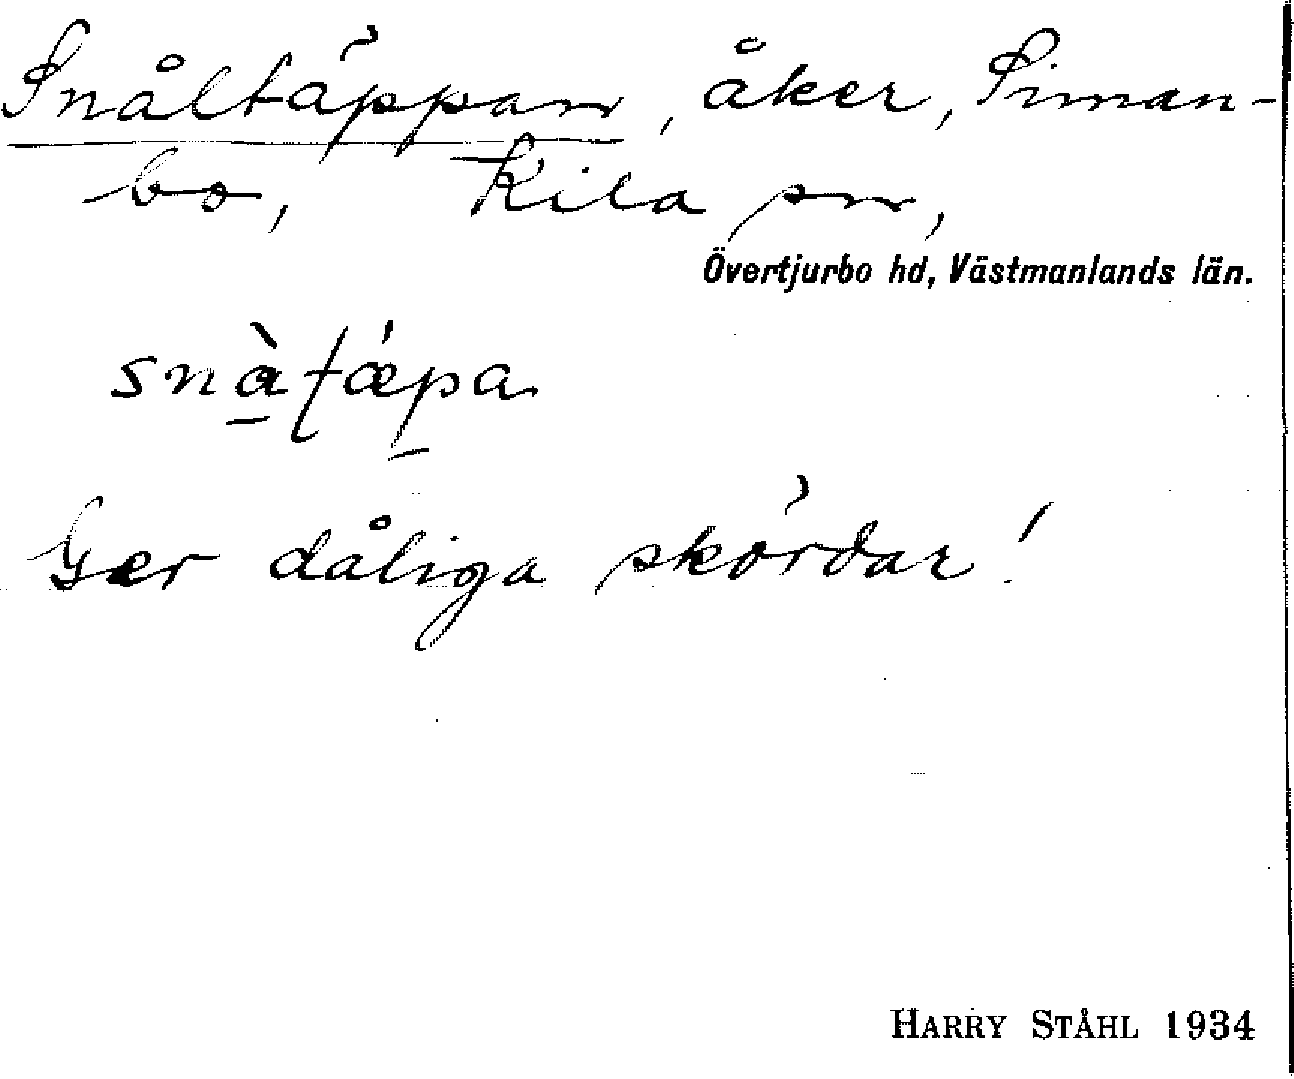 Snåltäppan, åker, Siman-
bo, Kila sn,
Övertjurbo hd, Västmanlands län.
snàtǽpa
Ger dåliga skördar!
HARRY STÅHL 1934